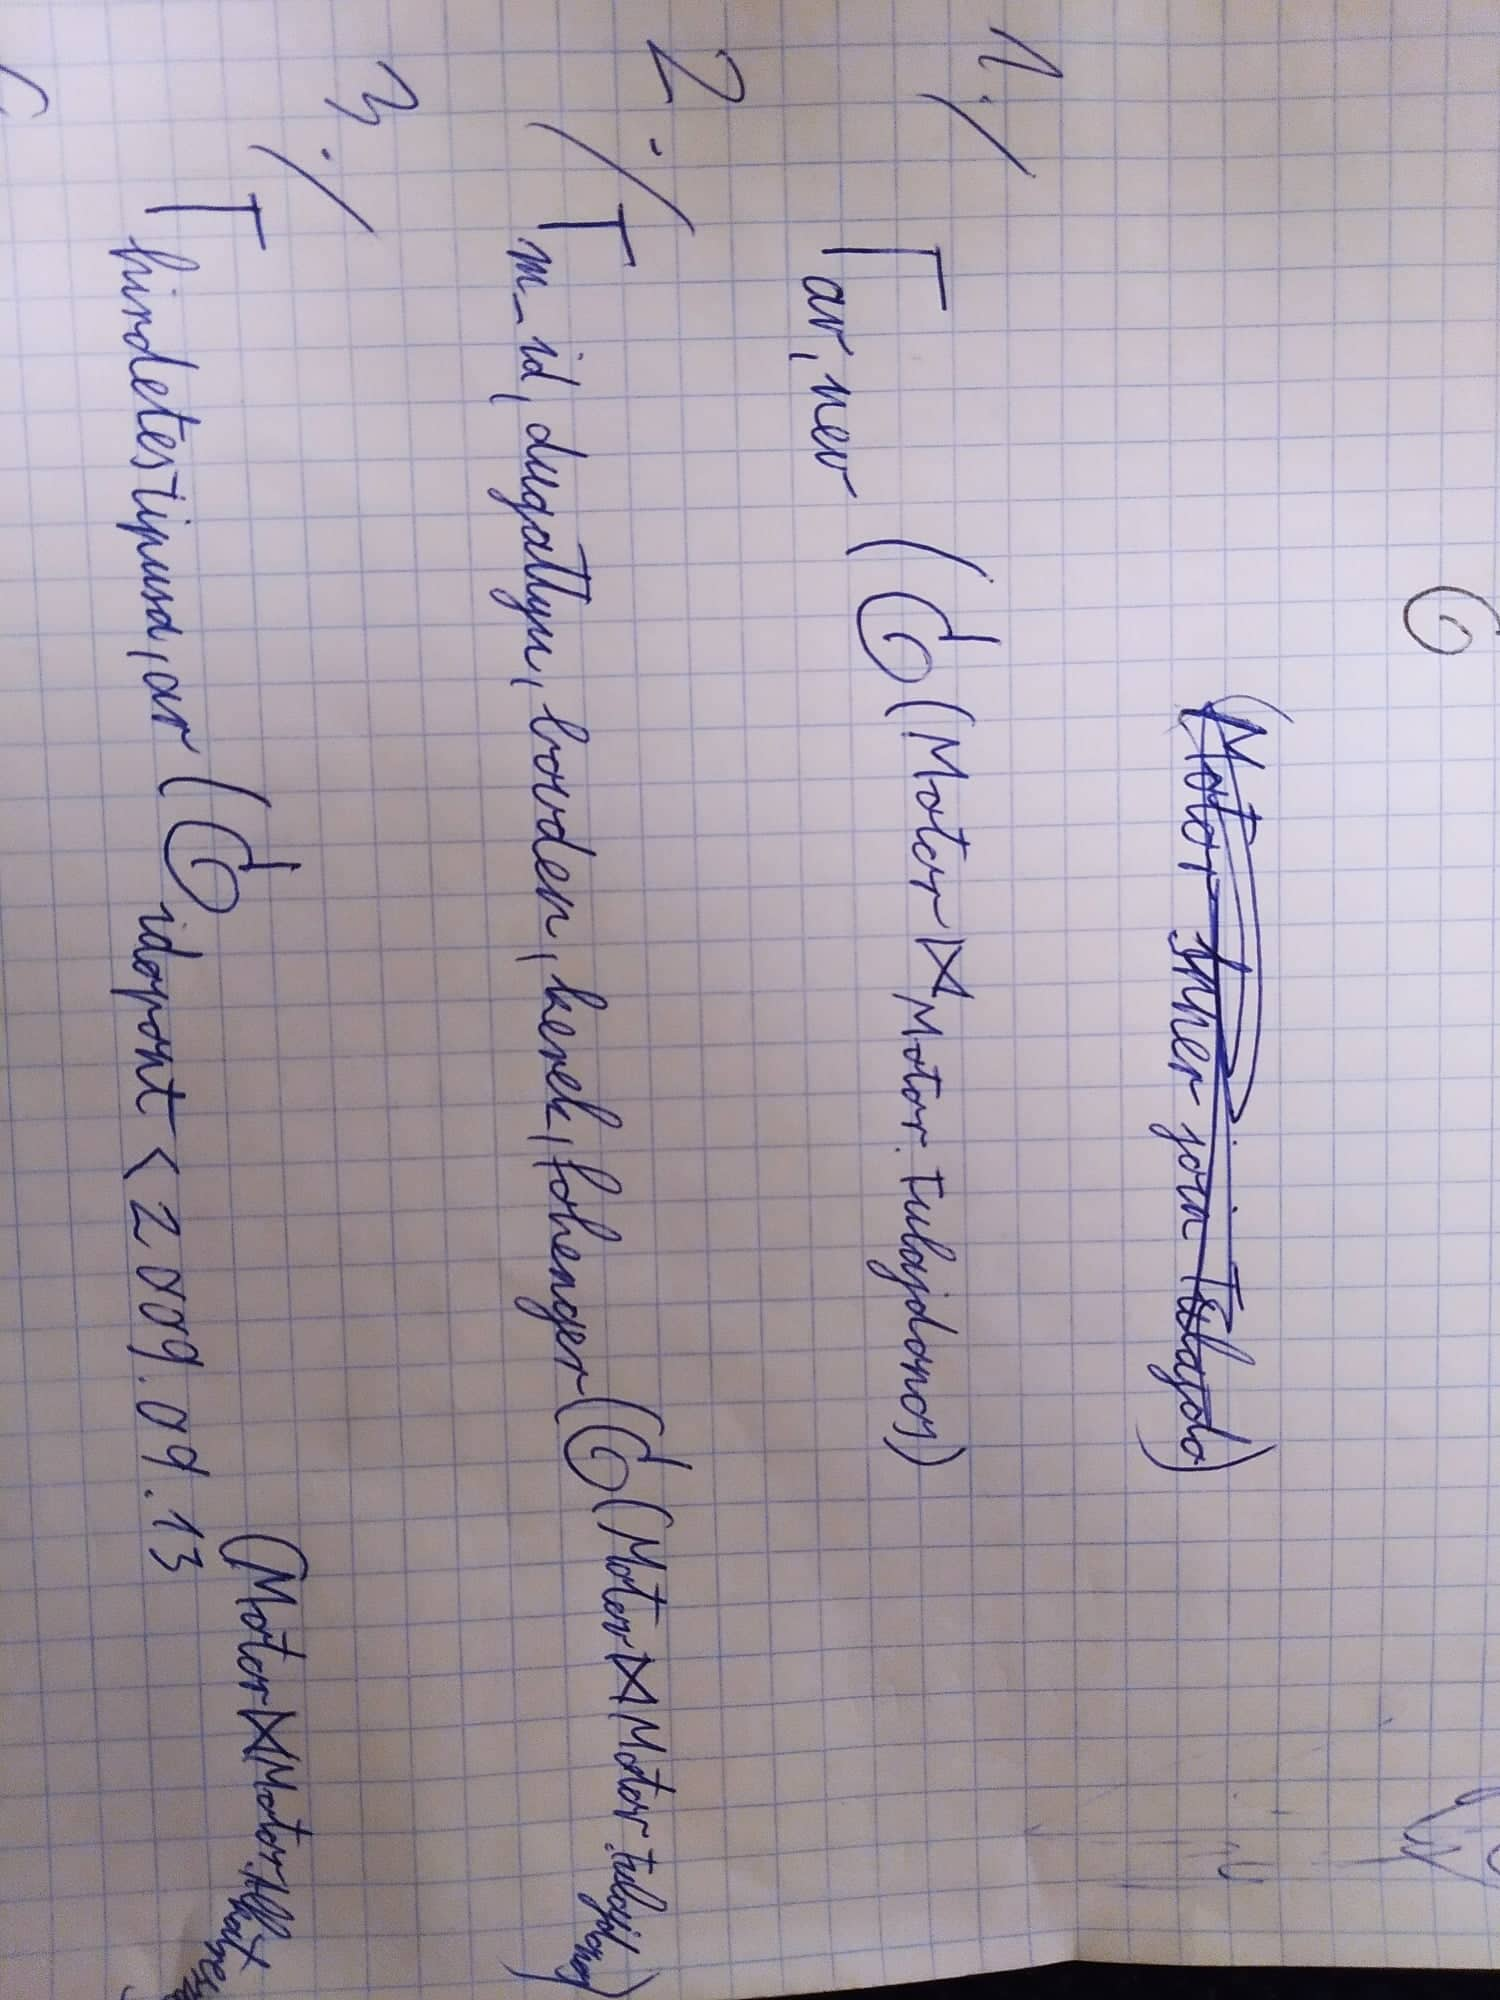 (Motor inner join Tulajdo)
1./
Γ ar, nev (σ(Motor ⋈ Motor.Tulajdonos)
2./
Γ m_id, dugattyu, bowden, kerek, fohenger (σ(Motor ⋈ Motor.tulajdonos)
3./
Γ hirdetestipusa, ar (σ idopont < 2009.09.13 (Motor ⋈ Motor.